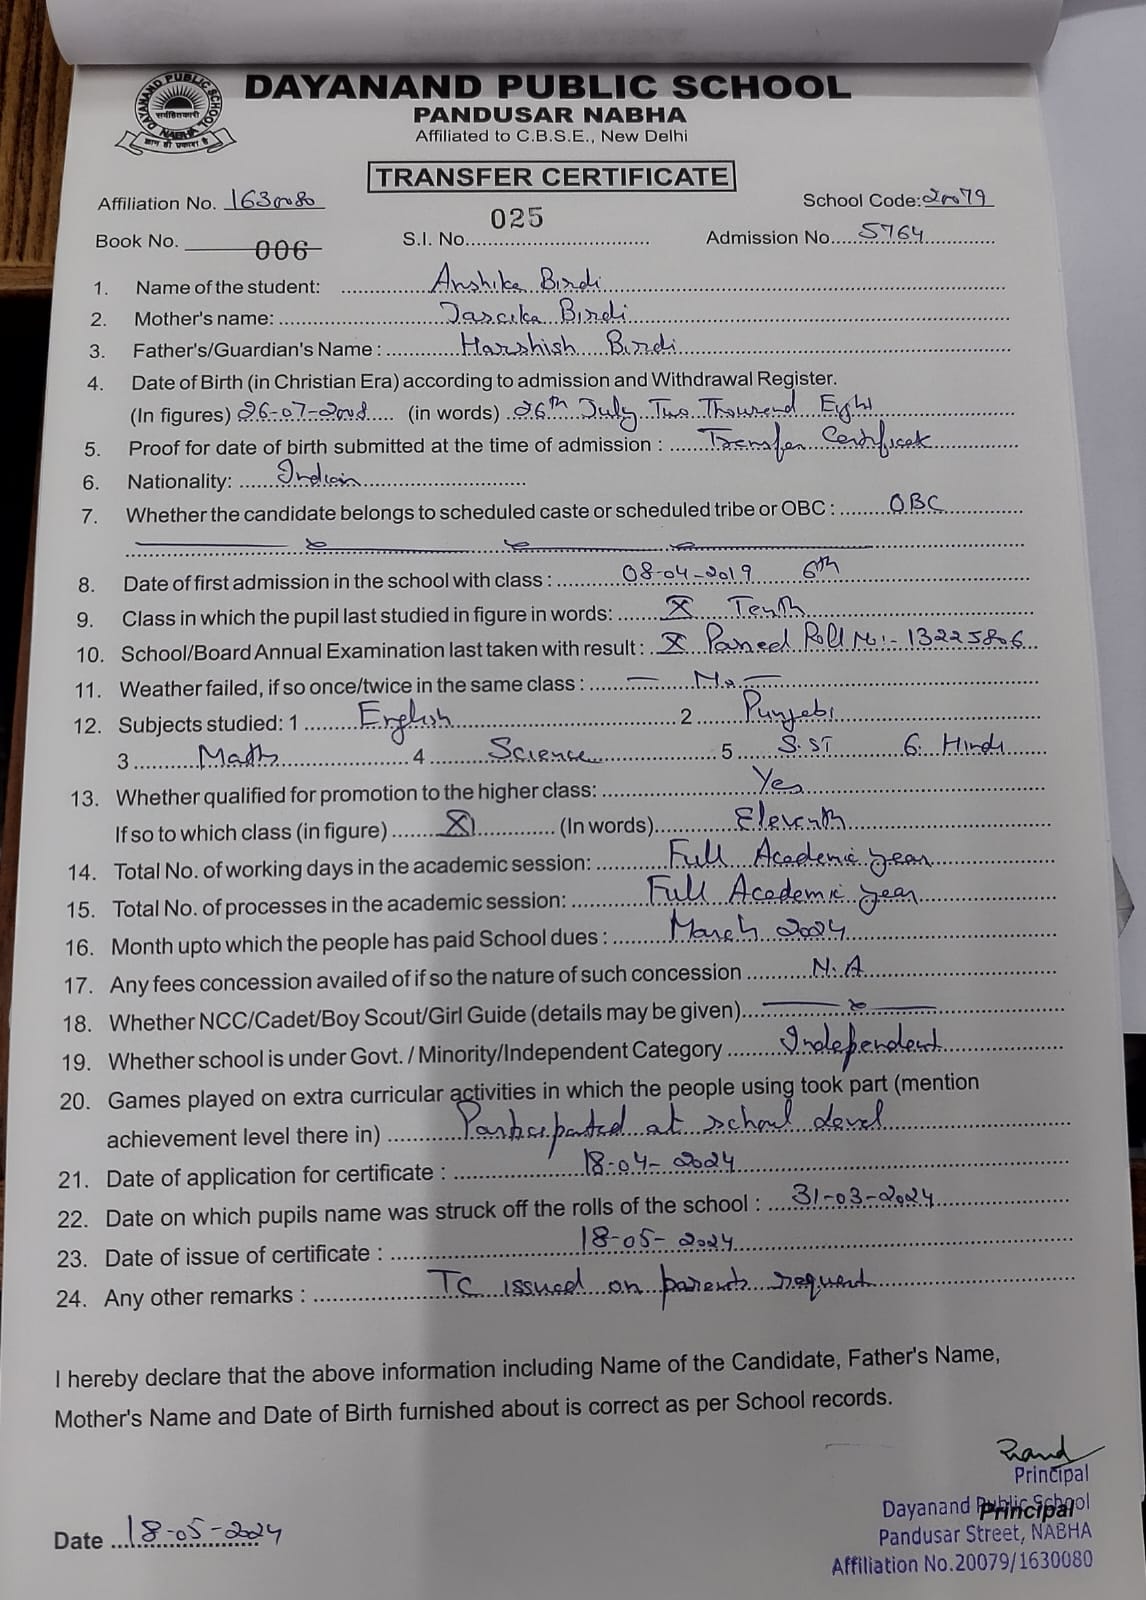 DAYANAND PUBLIC SCHOOL
DAYANAND PUBLIC SCHOOL
PANDUSAR NABHA
Affiliated to C.B.S.E., New Delhi
सर्वहितकारी
NABHA
ज्ञान ही प्रकाश है
TRANSFER CERTIFICATE
Affiliation No. 1630080 School Code: 20079
Book No. 006 S.I. No. 025 Admission No. 5764
1. Name of the student: Anshika Birdi
2. Mother's name: Birdi
3. Father's/Guardian's Name : Harshish Birdi
4. Date of Birth (in Christian Era) according to admission and Withdrawal Register.
(In figures) 26-07-2008 (in words) 26th July Two Thousand Eight
5. Proof for date of birth submitted at the time of admission : Transfer Certificate
6. Nationality: Indian
7. Whether the candidate belongs to scheduled caste or scheduled tribe or OBC : OBC
8. Date of first admission in the school with class : 08-04-2019 6th
9. Class in which the pupil last studied in figure in words: X Tenth
10. School/Board Annual Examination last taken with result : X Passed Roll No:- 13225806
11. Weather failed, if so once/twice in the same class : — No —
12. Subjects studied: 1 English 2 Punjabi
3 Math 4 Science 5 S.ST 6. Hindi
13. Whether qualified for promotion to the higher class: Yes
If so to which class (in figure) XI (In words) Eleventh
14. Total No. of working days in the academic session: Full Academic year
15. Total No. of processes in the academic session: Full Academic year
16. Month upto which the people has paid School dues : March 2024
17. Any fees concession availed of if so the nature of such concession N.A
18. Whether NCC/Cadet/Boy Scout/Girl Guide (details may be given)
19. Whether school is under Govt. / Minority/Independent Category Independent
20. Games played on extra curricular activities in which the people using took part (mention
achievement level there in) Participated at school level
21. Date of application for certificate : 18-04-2024
22. Date on which pupils name was struck off the rolls of the school : 31-03-2024
23. Date of issue of certificate : 18-05-2024
24. Any other remarks : TC issued on parents request
I hereby declare that the above information including Name of the Candidate, Father's Name,
Mother's Name and Date of Birth furnished about is correct as per School records.
Principal
Dayanand Public School
Principal
Pandusar Street, NABHA
Date 18-05-2024
Affiliation No.20079/1630080